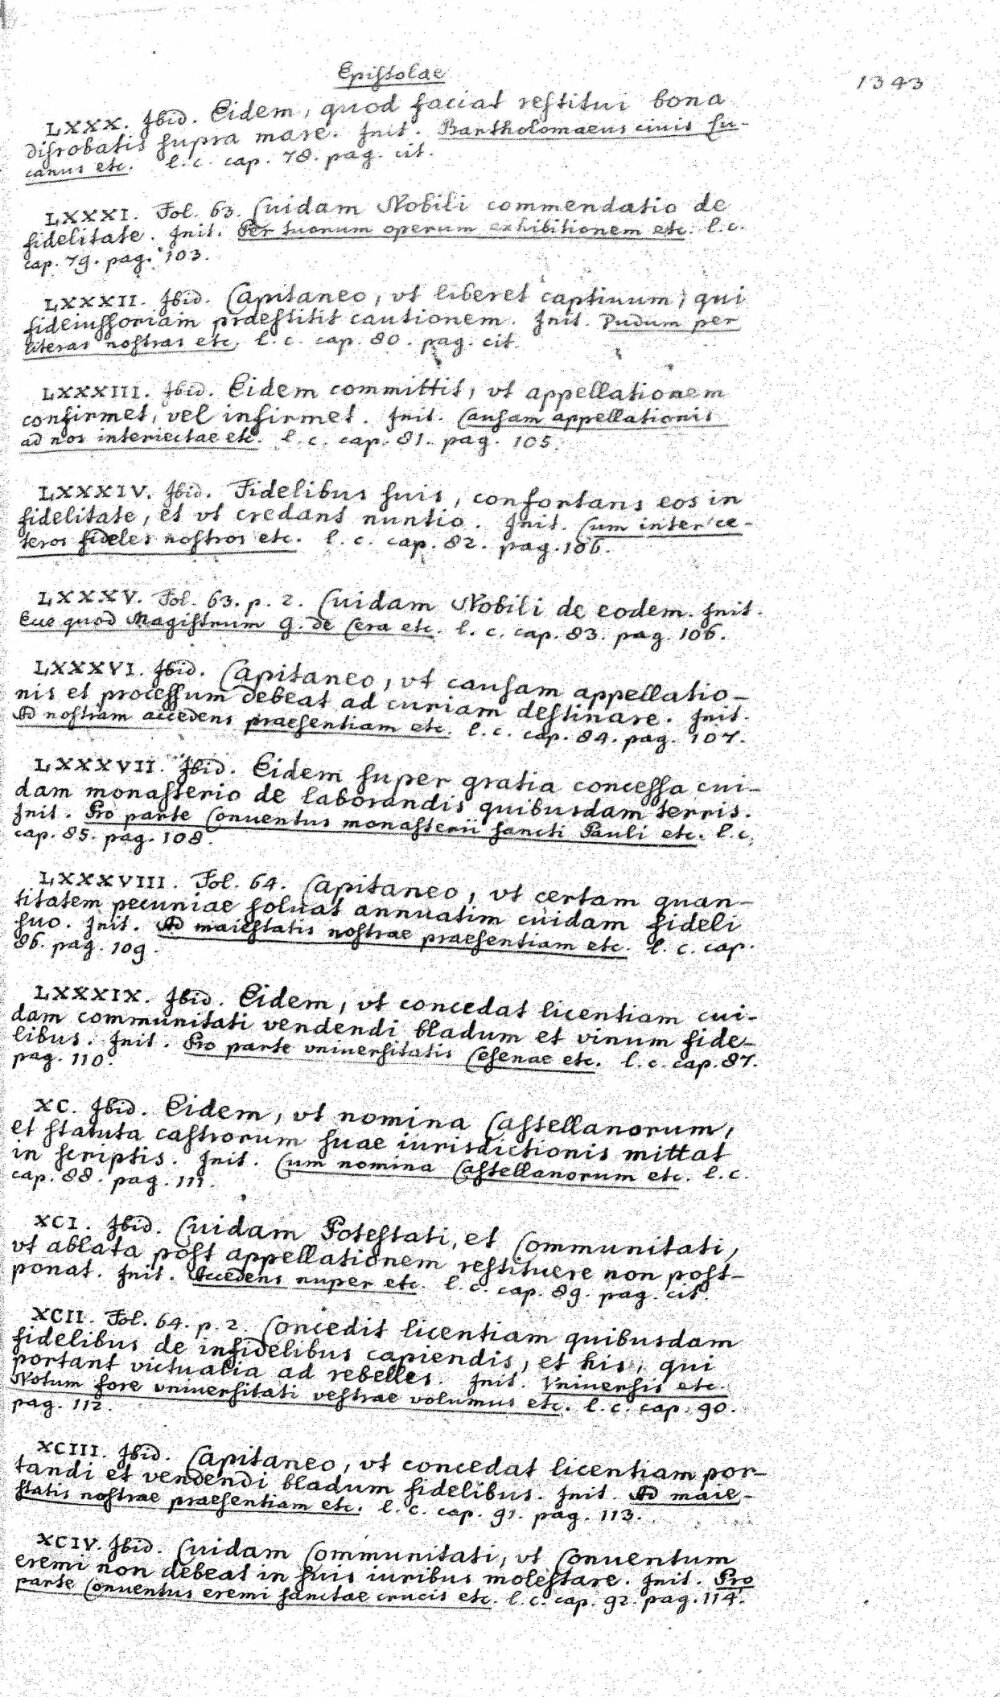 Epistolae
1343
LXXX. Ibid. Eidem, quod faciat restitui bona
disrobatis supra mare. Init. Bartholomaeus civis Lu-
canus etc. l. c. cap. 78. pag. cit.
LXXXI. Fol. 63. Cuidam Nobili commendatio de
fidelitate. Init. Per tuorum operum exhibitionem etc. l. c.
cap. 79. pag. 103.
LXXXII. Ibid. Capitaneo, vt liberet captiuum, qui
fideiussoriam praestitit cautionem. Init. Dudum per
literas nostras etc. l. c. cap. 80. pag. cit.
LXXXIII. Ibid. Eidem committit, vt appellationem
confirmet, vel infirmet. Init. Causam appellationis
ad nos interiectae etc. l. c. cap. 81. pag. 105.
LXXXIV. Ibid. Fidelibus suis, confortans eos in
fidelitate, et vt credant nuntio. Init. Cum inter ce-
teros fideles nostros etc. l. c. cap. 82. pag. 106.
LXXXV. Fol. 63. p. 2. Cuidam Nobili de eodem. Init.
Ecce quod Magistrum G. de Cera etc. l. c. cap. 83. pag. 106.
LXXXVI. Ibid. Capitaneo, vt causam appellatio-
nis et processum debeat ad curiam destinare. Init.
Ad nostram accedens praesentiam etc. l. c. cap. 84. pag. 107.
LXXXVII. Ibid. Eidem super gratia concessa cui-
dam monasterio de laborandis quibusdam terris.
Init. Pro parte Conventus monasterii sancti Pauli etc. l. c.
cap. 85. pag. 108.
LXXXVIII. Fol. 64. Capitaneo, vt certam quan-
titatem pecuniae soluat annuatim cuidam fideli
suo. Init. Ad maiestatis nostrae praesentiam etc. l. c. cap.
86. pag. 109.
LXXXIX. Ibid. Eidem, vt concedat licentiam cui-
dam communitati vendendi bladum et vinum fide-
libus. Init. Pro parte vniuersitatis Cesenae etc. l. c. cap. 87.
pag. 110.
XC. Ibid. Eidem, vt nomina Castellanorum,
et statuta castrorum suae iurisdictionis mittat
in scriptis. Init. Cum nomina Castellanorum etc. l. c.
cap. 88. pag. 111.
XCI. Ibid. Cuidam Potestati, et Communitati,
vt ablata post appellationem restituere non post-
ponat. Init. Accedens nuper etc. l. c. cap. 89. pag. cit.
XCII. Fol. 64. p. 2. Concedit licentiam quibusdam
fidelibus de infidelibus capiendis, et his, qui
portant victualia ad rebelles. Init. Vniuersis etc.
Notum fore vniuersitati vestrae volumus etc. l. c. cap. 90.
pag. 112.
XCIII. Ibid. Capitaneo, vt concedat licentiam por-
tandi et vendendi bladum fidelibus. Init. Ad maie-
statis nostrae praesentiam etc. l. c. cap. 91. pag. 113.
XCIV. Ibid. Cuidam Communitati, vt Conventum
eremi non debeat in suis iuribus molestare. Init. Pro
parte Conventus eremi sanctae crucis etc. l. c. cap. 92. pag. 114.